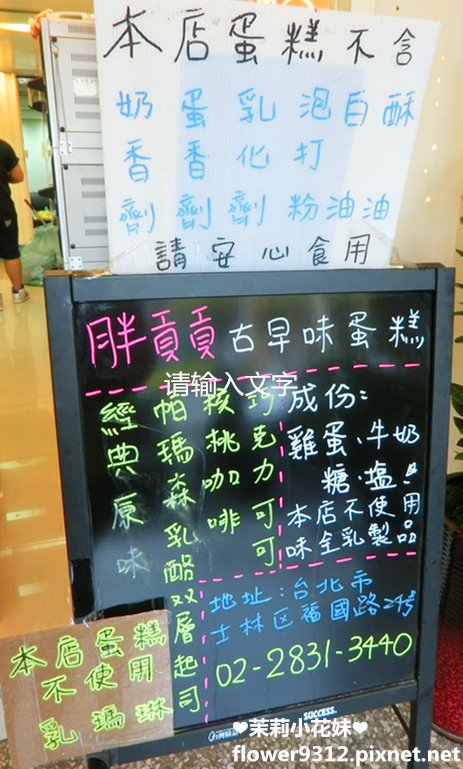 本店蛋糕不含
奶香劑
蛋香劑
乳化劑
泡打粉
白油
酥油
請安心食用
胖貢貢古早味蛋糕
请输入文字
經典原味
帕瑪森乳酪双層起司
核桃咖啡
巧克力可可
成份:
雞蛋、牛奶
糖、塩!
本店不使用
味全乳製品
地址:台北市
士林区福國路24号
02-2831-3440
本店蛋糕
不使用
乳瑪琳
SUCCESS
❤茉莉小花妹❤
flower9312.pixnet.net